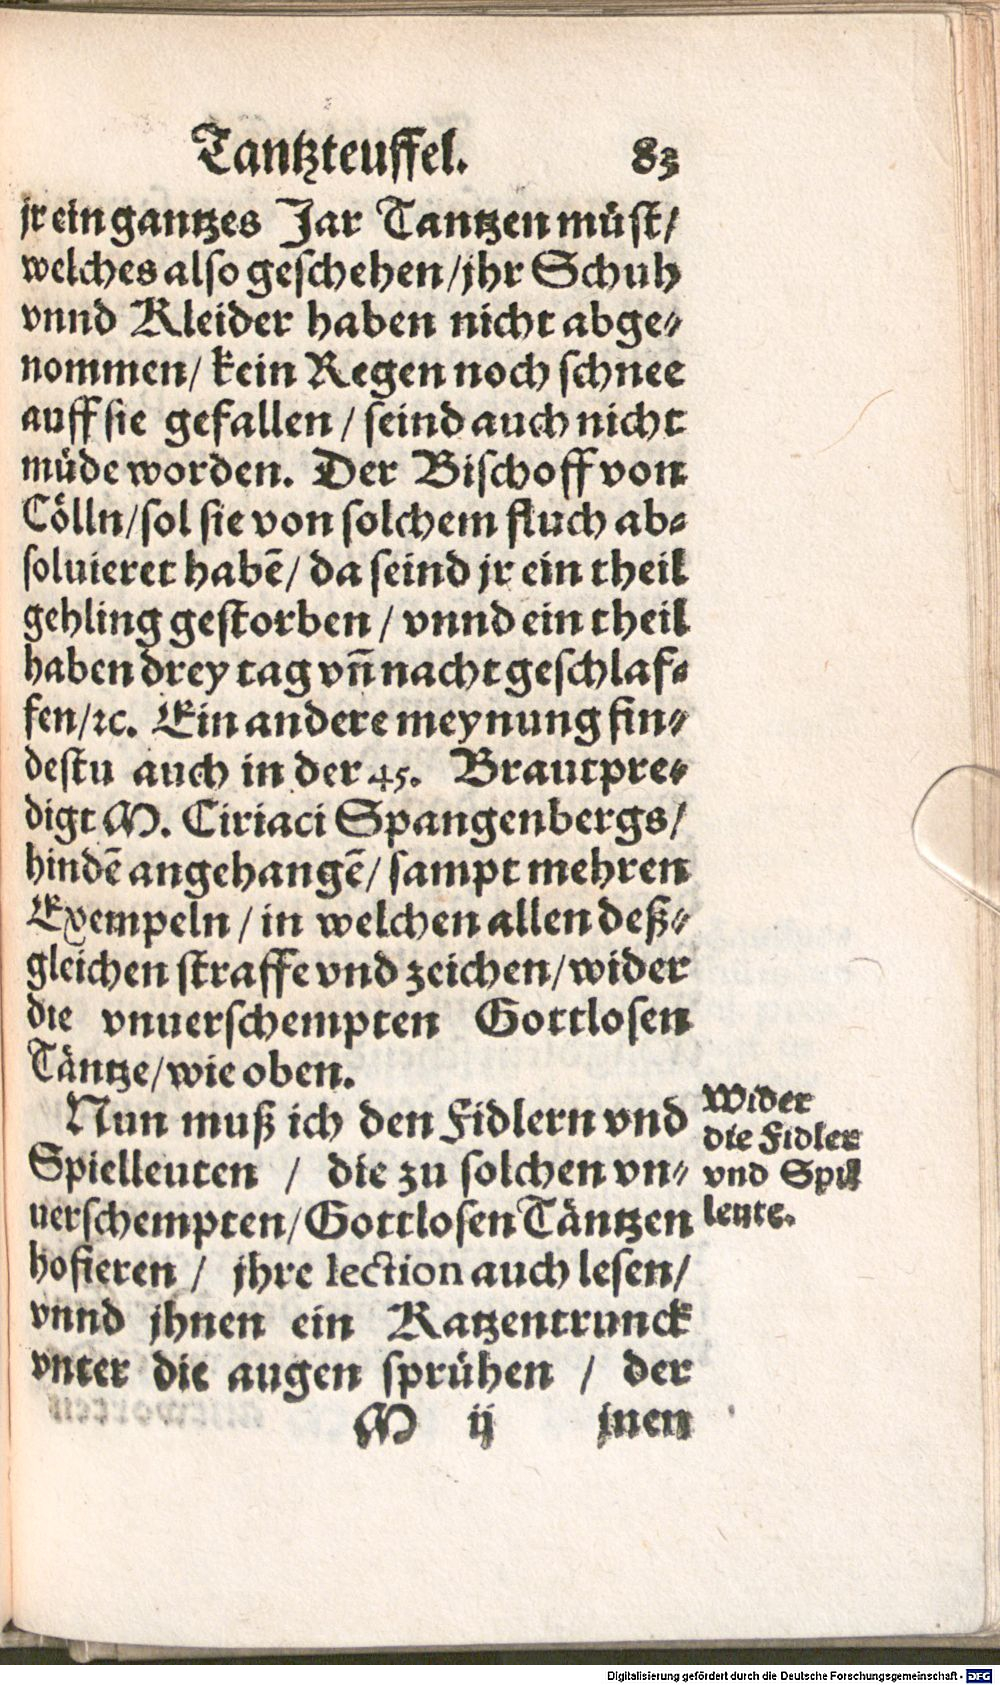 Tantzteuffel. 83
jr ein gantzes Jar Tantzen müst/
welches also geschehen/jhr Schuh
vnnd Kleider haben nicht abge-
nommen/ kein Regen noch schnee
auff sie gefallen / seind auch nicht
müde worden. Der Bischoff von
Cölln/sol sie von solchem fluch ab-
soluieret habē/ da seind jr ein theil
gehling gestorben / vnnd ein theil
haben drey tag vñ nacht geschlaf-
fen/ꝛc. Ein andere meynung fin-
destu auch in der 45. Brautpre-
digt M. Ciriaci Spangenbergs/
hindē angehangē/ sampt mehren
Exempeln / in welchen allen deß-
gleichen straffe vnd zeichen/wider
die vnuerschempten Gottlosen
Täntze/wie oben.
Nun muß ich den Fidlern vnd
Spielleuten / die zu solchen vn-
uerschempten/Gottlosen Täntzen
hofieren / jhre lection auch lesen/
vnnd jhnen ein Katzentrunck
vnter die augen sprühen / der
M ij jnen
Wider
die Fidler
vnd Spil
leute.
Digitalisierung gefördert durch die Deutsche Forschungsgemeinschaft - DFG